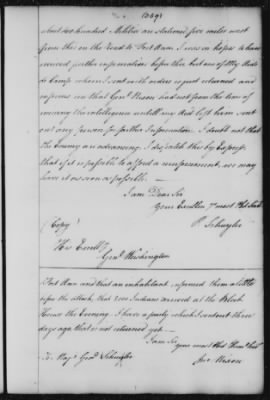 (169)
about six hundred Militia are stationed five miles west
from this on the Road to Fort Ann. I was in hopes to have
received further information before this but one of my Aids
de Camp whom I sent with orders is just returned and
informs me that Genl. Nixon had not from the time of
receiving the intelligence untill my Aid left him sent
out any person for further Information. I doubt not that
the Enemy are advancing. I dispatch this by Express
that if it is possible to afford a reinforcement, we may
have it as soon as possible. —
I am Dear Sir
Your Excellency's most Obt. Servt.
P. Schuyler
(Copy)
His Excelly.
Genl. Washington
Fort Ann and that an inhabitant informed them a little
before the attack, that 1000 Indians arrived at the Block
House the Evening. I have a party which I sent out three
days ago that is not returned yet. —
I am Sir
your most Obt. Humb. Servt.
To Majr. Genl. Schuyler
Jno. Nixon